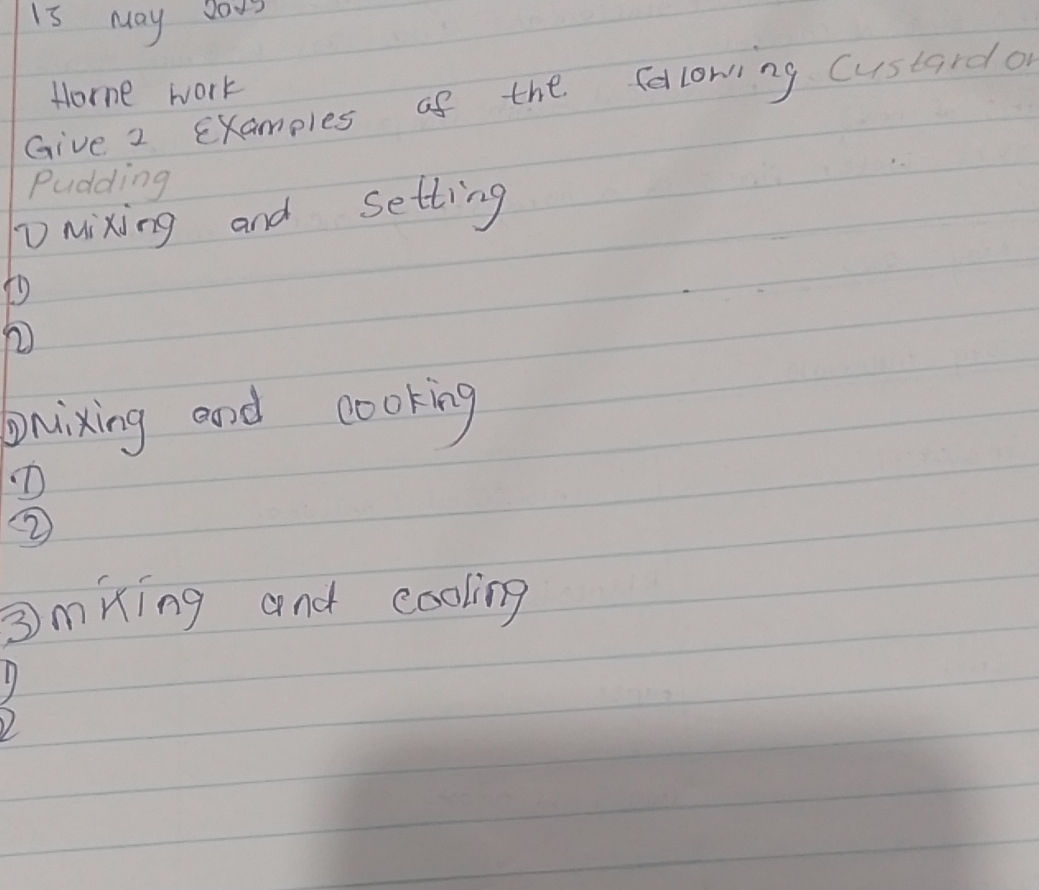 13 May 2025
Home work
Give 2 Examples of the following Custard or
Pudding
1) Mixing and Setting
①
②
② Mixing and cooking
①
②
③ mixing and cooling
1)
2